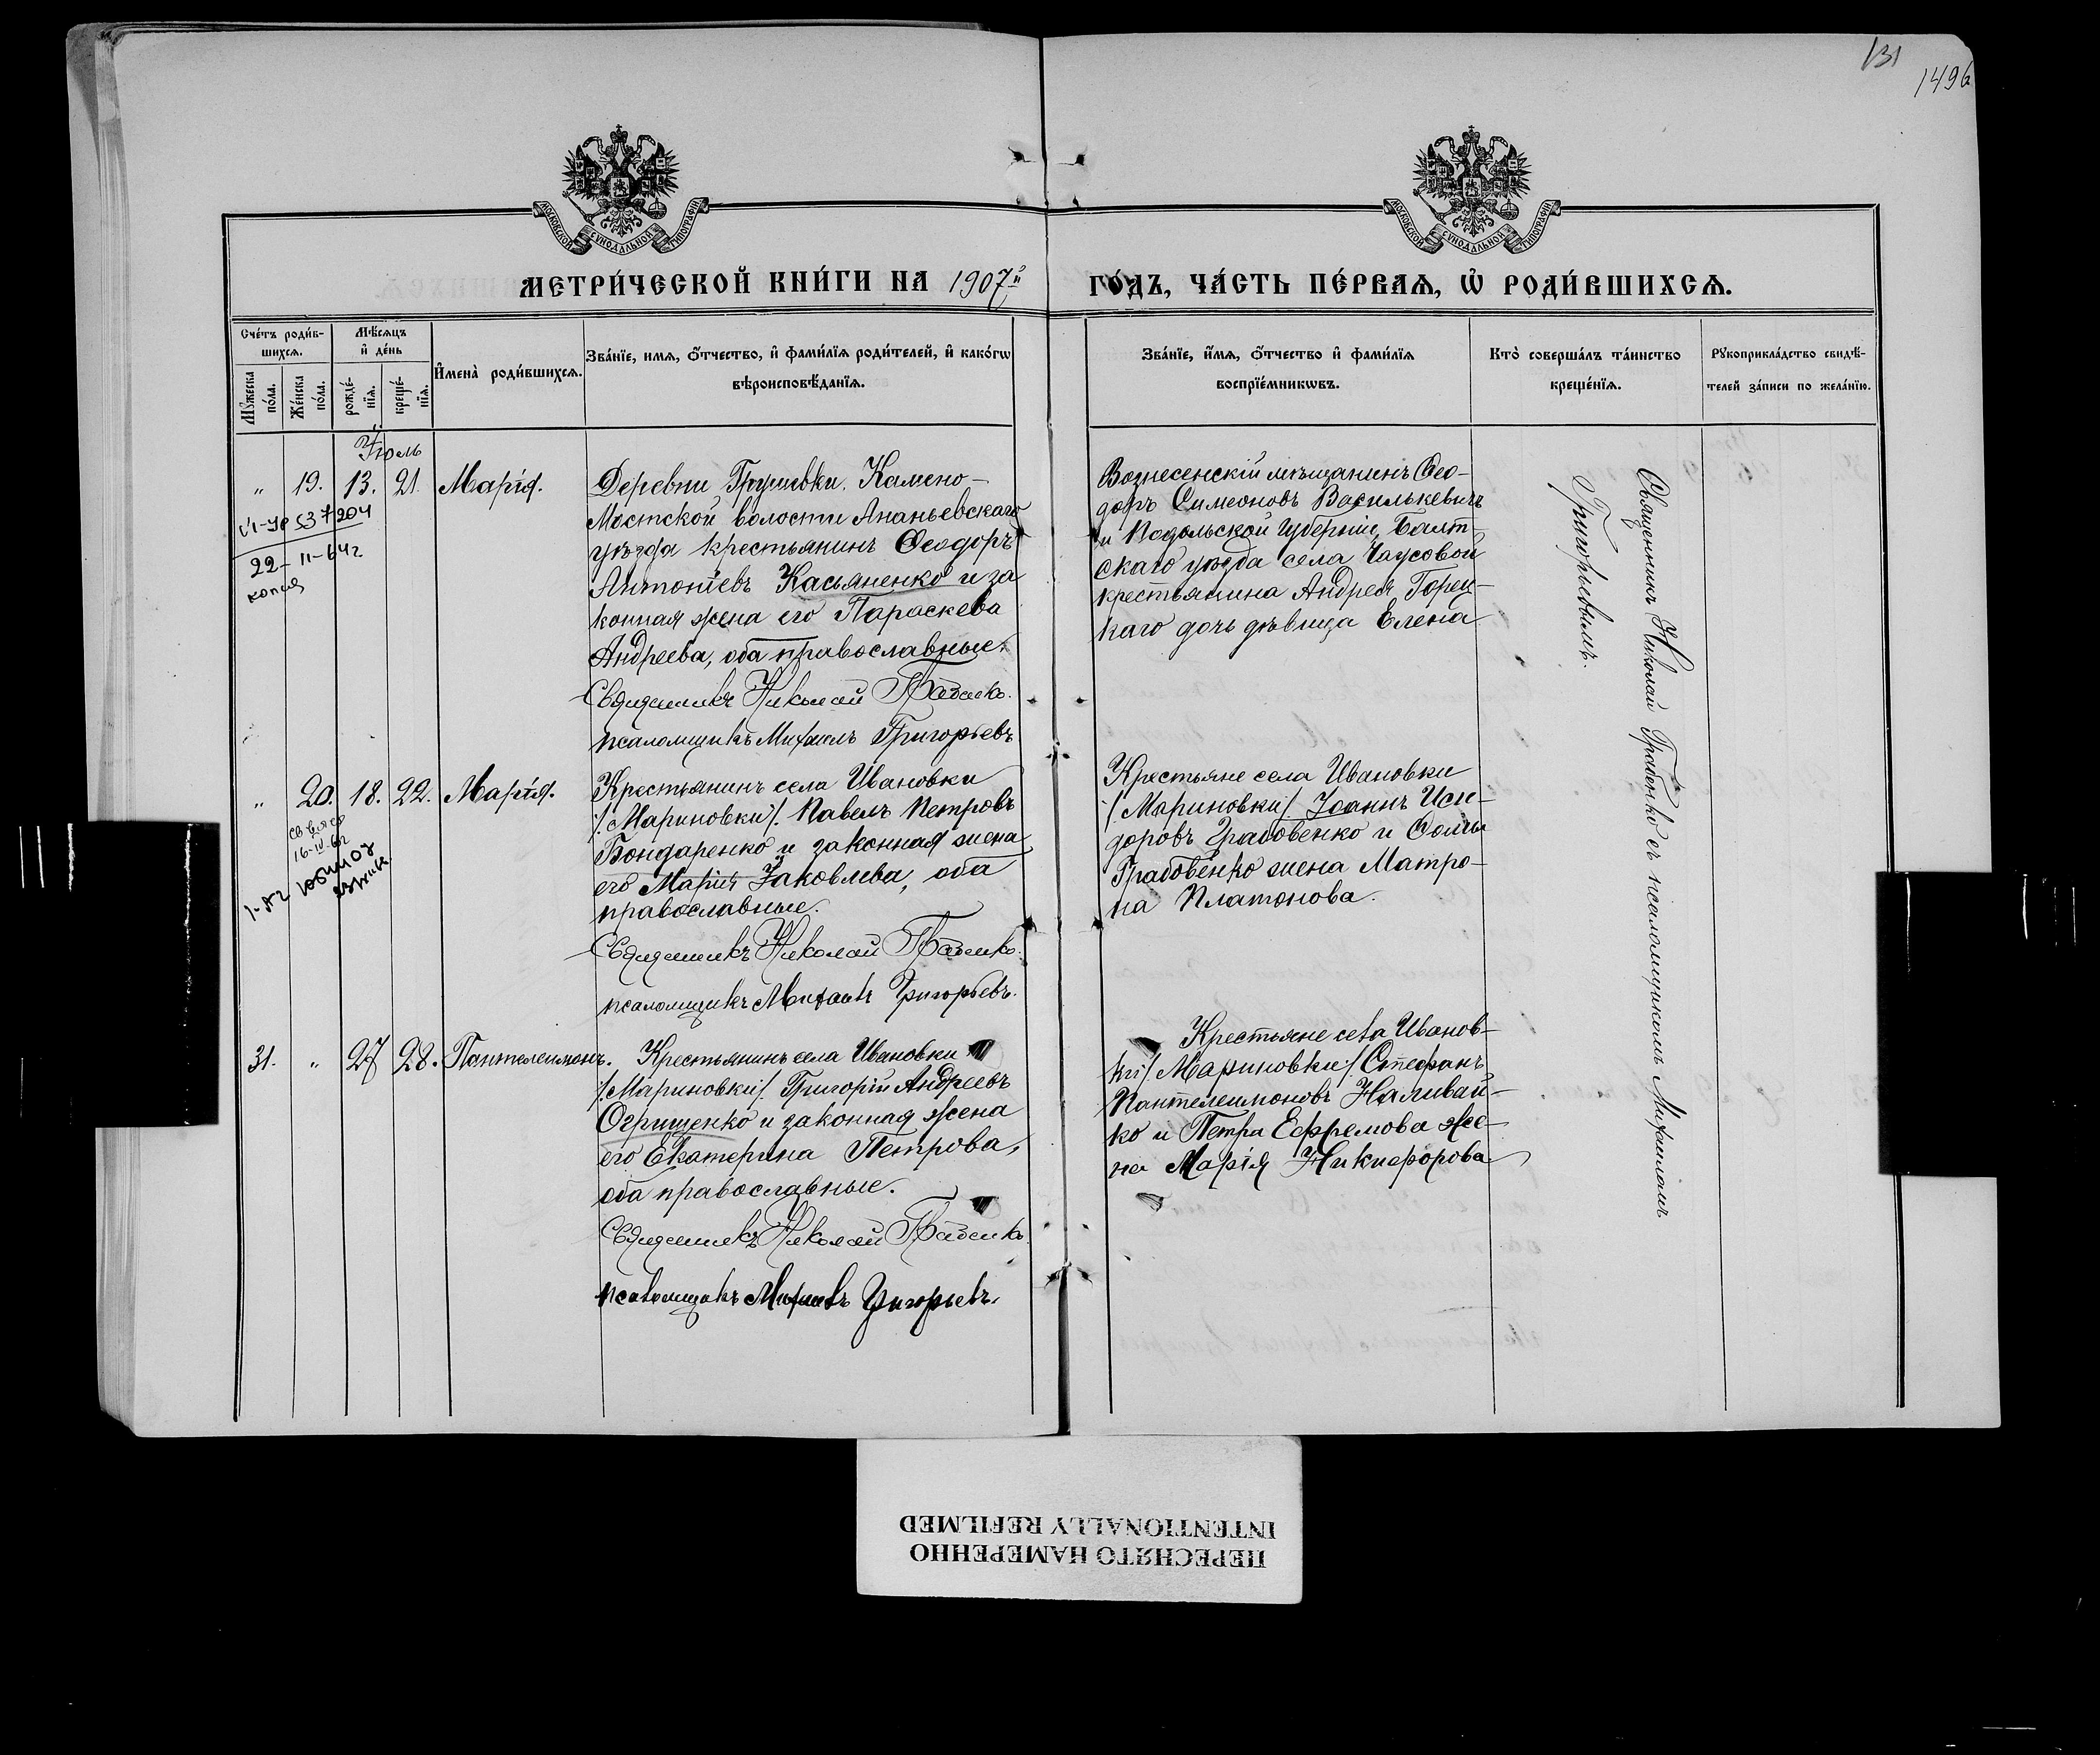 131
1496
МОСКОВСКОЙ СѴНОДАЛЬНОЙ ТИПОГРАФІИ
МОСКОВСКОЙ СѴНОДАЛЬНОЙ ТИПОГРАФІИ
МЕТРИ́ЧЕСКОЙ КНИ́ГИ НА 1907й
ГО́ДЪ, ЧА́СТЬ ПЕ́РВАѦ, Ѽ РОДИ́ВШИХСѦ.
Сче́тъ роди́в-
шихсѧ.
Мꙋ́жеска по́ла.
Же́нска по́ла.
Мѣ́сѧцъ
и҆ де́нь
рожде́-
нїѧ.
креще́-
нїѧ.
И҆мена̀ роди́вшихсѧ.
Зва́нїе, имѧ, ѻ҆́тчество, и҆ фами́лїѧ роди́телей, и҆ како́гѡ
вѣроисповѣ́данїѧ.
Зва́нїе, и҆́мѧ, ѻ҆́тчество и҆ фами́лїѧ
воспрїе́мникѡвъ.
Кто̀ соверша́лъ та́инство
креще́нїѧ.
Рꙋкоприкла́дство свидѣ́-
телей за́писи по жела́нїю.
Іюль
" 19. 13. 21. Марія.
22-II-64г
копия
Деревни Грушевки. Камено-
Мостской волости Ананьевскаго
уѣзда крестьянинъ Ѳеодоръ
Антоніевъ Касьяненко и за
конная жена его Параскева
Андреева, оба православные.
Священникъ Николай Грабенко.
псаломщикъ Михаилъ Григорьевъ
Вознесенскій мѣщанинъ Ѳео-
доръ Симеоновъ Василькевичъ
и Подольской губерніи, Балт-
скаго уѣзда села Чаусовой
крестьянина Андрея Горец-
каго дочь дѣвица Елена
Священникъ Николай Грабенко съ псаломщикомъ Михаиломъ
Григорьевымъ.
" 20. 18. 22. Марія.
16-IV-62
Крестьянинъ села Ивановки
/:Мариновки/. Павелъ Петровъ
Бондаренко и законная жена
его Марія Іаковлева, оба
православные.
Священникъ Николай Грабенко.
псаломщикъ Михаилъ Григорьевъ.
Крестьяне села Ивановки
/Мариновки/ Іоаннъ Иси-
доровъ Грабовенко и Ѳомы
Грабовенко жена Матро-
на Платонова.
31. " 27 28. Пантелеимонъ.
Крестьянинъ села Ивановки
/:Мариновки/. Григорій Андреевъ
Огрищенко и законная жена
его Екатерина Петрова,
оба православные.
Священникъ Николай Грабенко.
псаломщикъ Михаилъ Григорьевъ.
Крестьяне села Иванов-
ки/.Мариновки/. Стефанъ
Пантелеимоновъ Наливай-
ко и Петра Ефремова же-
на Марія Никифорова
ПЕРЕСНЯТО НАМЕРЕННО
INTENTIONALLY REFILMED